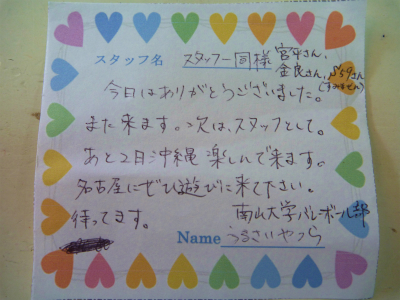 スタッフ名 スタッフ一同様 宮平さん、
金良さん、
(すみません)
今日はありがとうございました。
また来ます。次は、スタッフとして。
あと2日沖縄楽しんで来ます。
名古屋にぜひ遊びに来て下さい。
待ってます。 南山大学バレーボール部
Name うるさいやつら